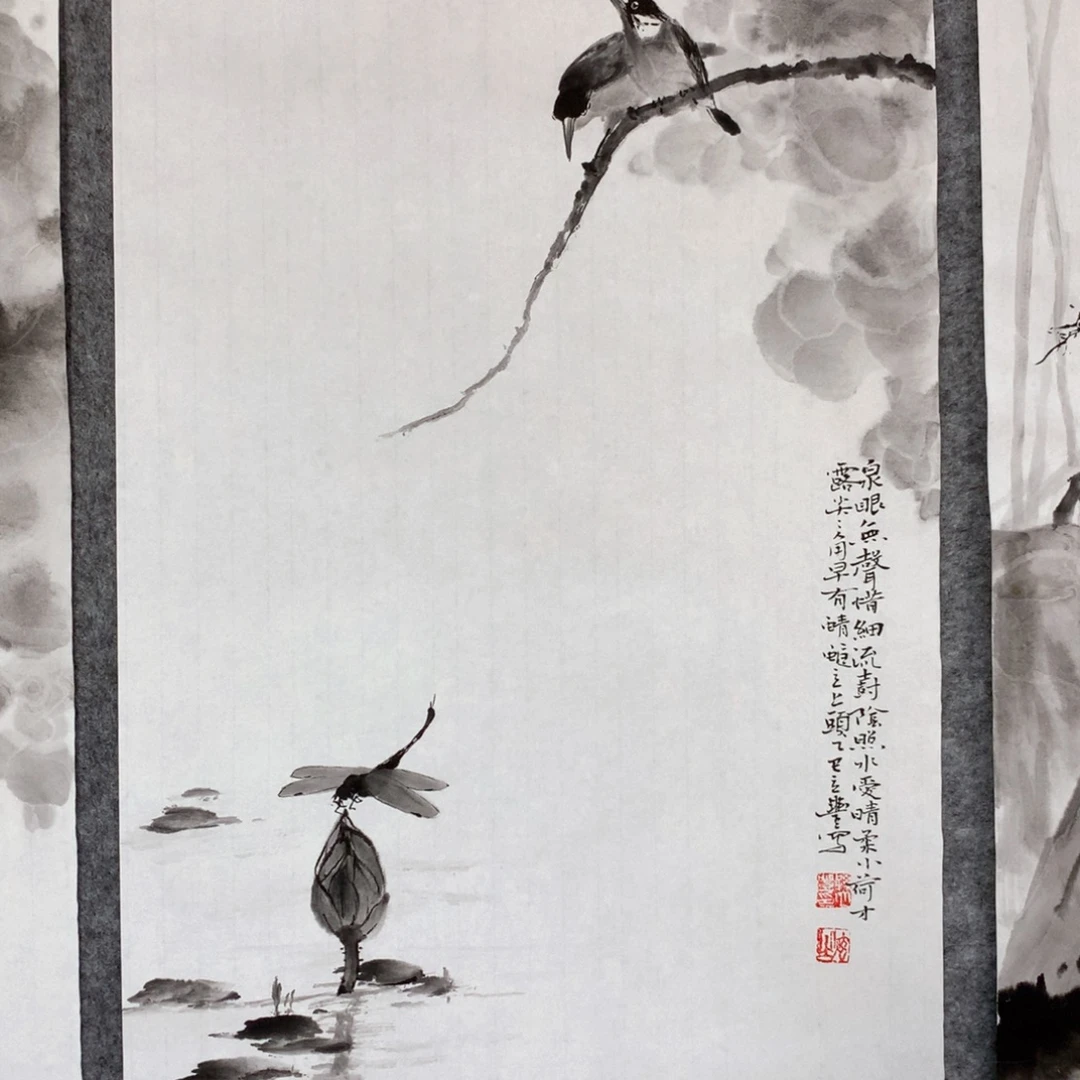 泉眼無聲惜細流尌陰照水愛晴柔小荷才
露尖々角早有蜻蜓立上頭乙巳立豐寫